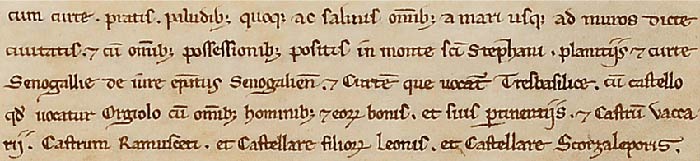 cum curte. pratis. piludib; quoq; ac salinis om̅ib; a mari usq; ad muros dicte
ciuitatis. ⁊ cū om̅ib; possessionib; positis in monte sc̅i Stephani. planitijs ⁊ curte
Senogallie de iure ep̅atus Senogalien̅. ⁊ Curtem que uocat̅ Tresbasilice. cū castello
qd̅ uocatur Orgiolo cū om̅ib; hominib; ⁊ eoꝝ bonis. et suis ꝑtinentijs. ⁊ Castrū vacca
rij. Castrum Ramosceti. et Castellare filioꝝ Leonis. et Castellare Scorzaleporis.